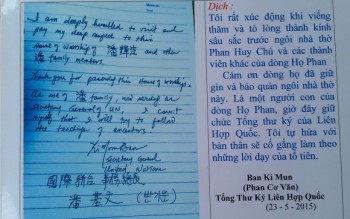 I am deeply humbled to visit and
pay my deep respect to this
House of Worship of 潘輝 and other
潘 family members.
Thank you for preserving this House of worship.
As one of 潘 family, now serving as
Secretary General of UN, I commit
myself that I will try to follow
the teachings of ancestors!
Ki Moon Ban
Secretary General
United Nations
國際聯合 事務總長
潘基文
Dịch :
Tôi rất xúc động khi viếng
thăm và tỏ lòng thành kính
sâu sắc trước ngôi nhà thờ
Phan Huy Chú và các thành
viên khác của dòng Họ Phan
Cám ơn dòng họ đã giữ
gìn và bảo quản ngôi nhà thờ
này. Là một người con của
dòng Họ Phan, giờ đây giữ
chức Tổng thư Ký Liên
Hợp Quốc. Tôi tự hứa với
bản thân sẽ cố gắng làm theo
những lời dạy của tổ tiên.
Ban Ki Mun
(Phan Cơ Văn)
Tổng Thư Ký Liên Hợp Quốc
(23 - 5 -2015)